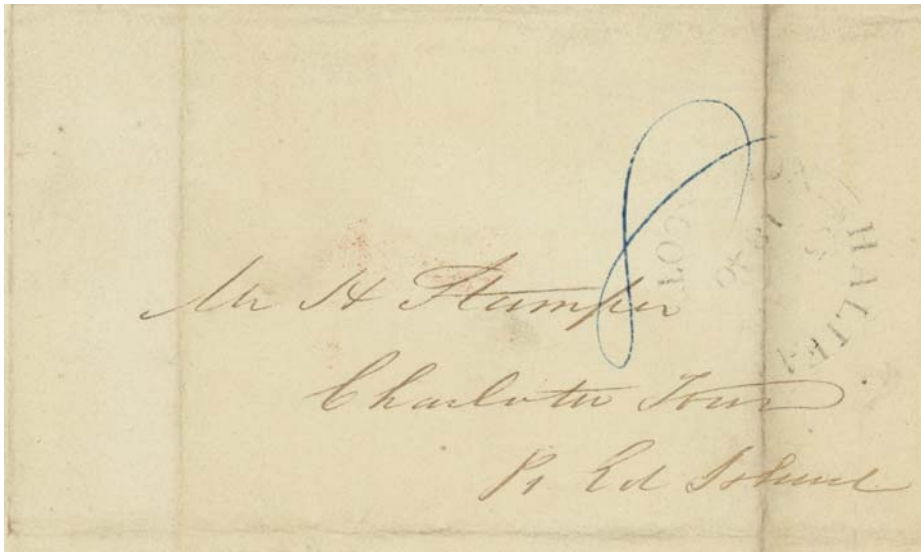 8
HALIFA
SCOT
Mr H Stamper
Charlotte Town
Pr Ed Island